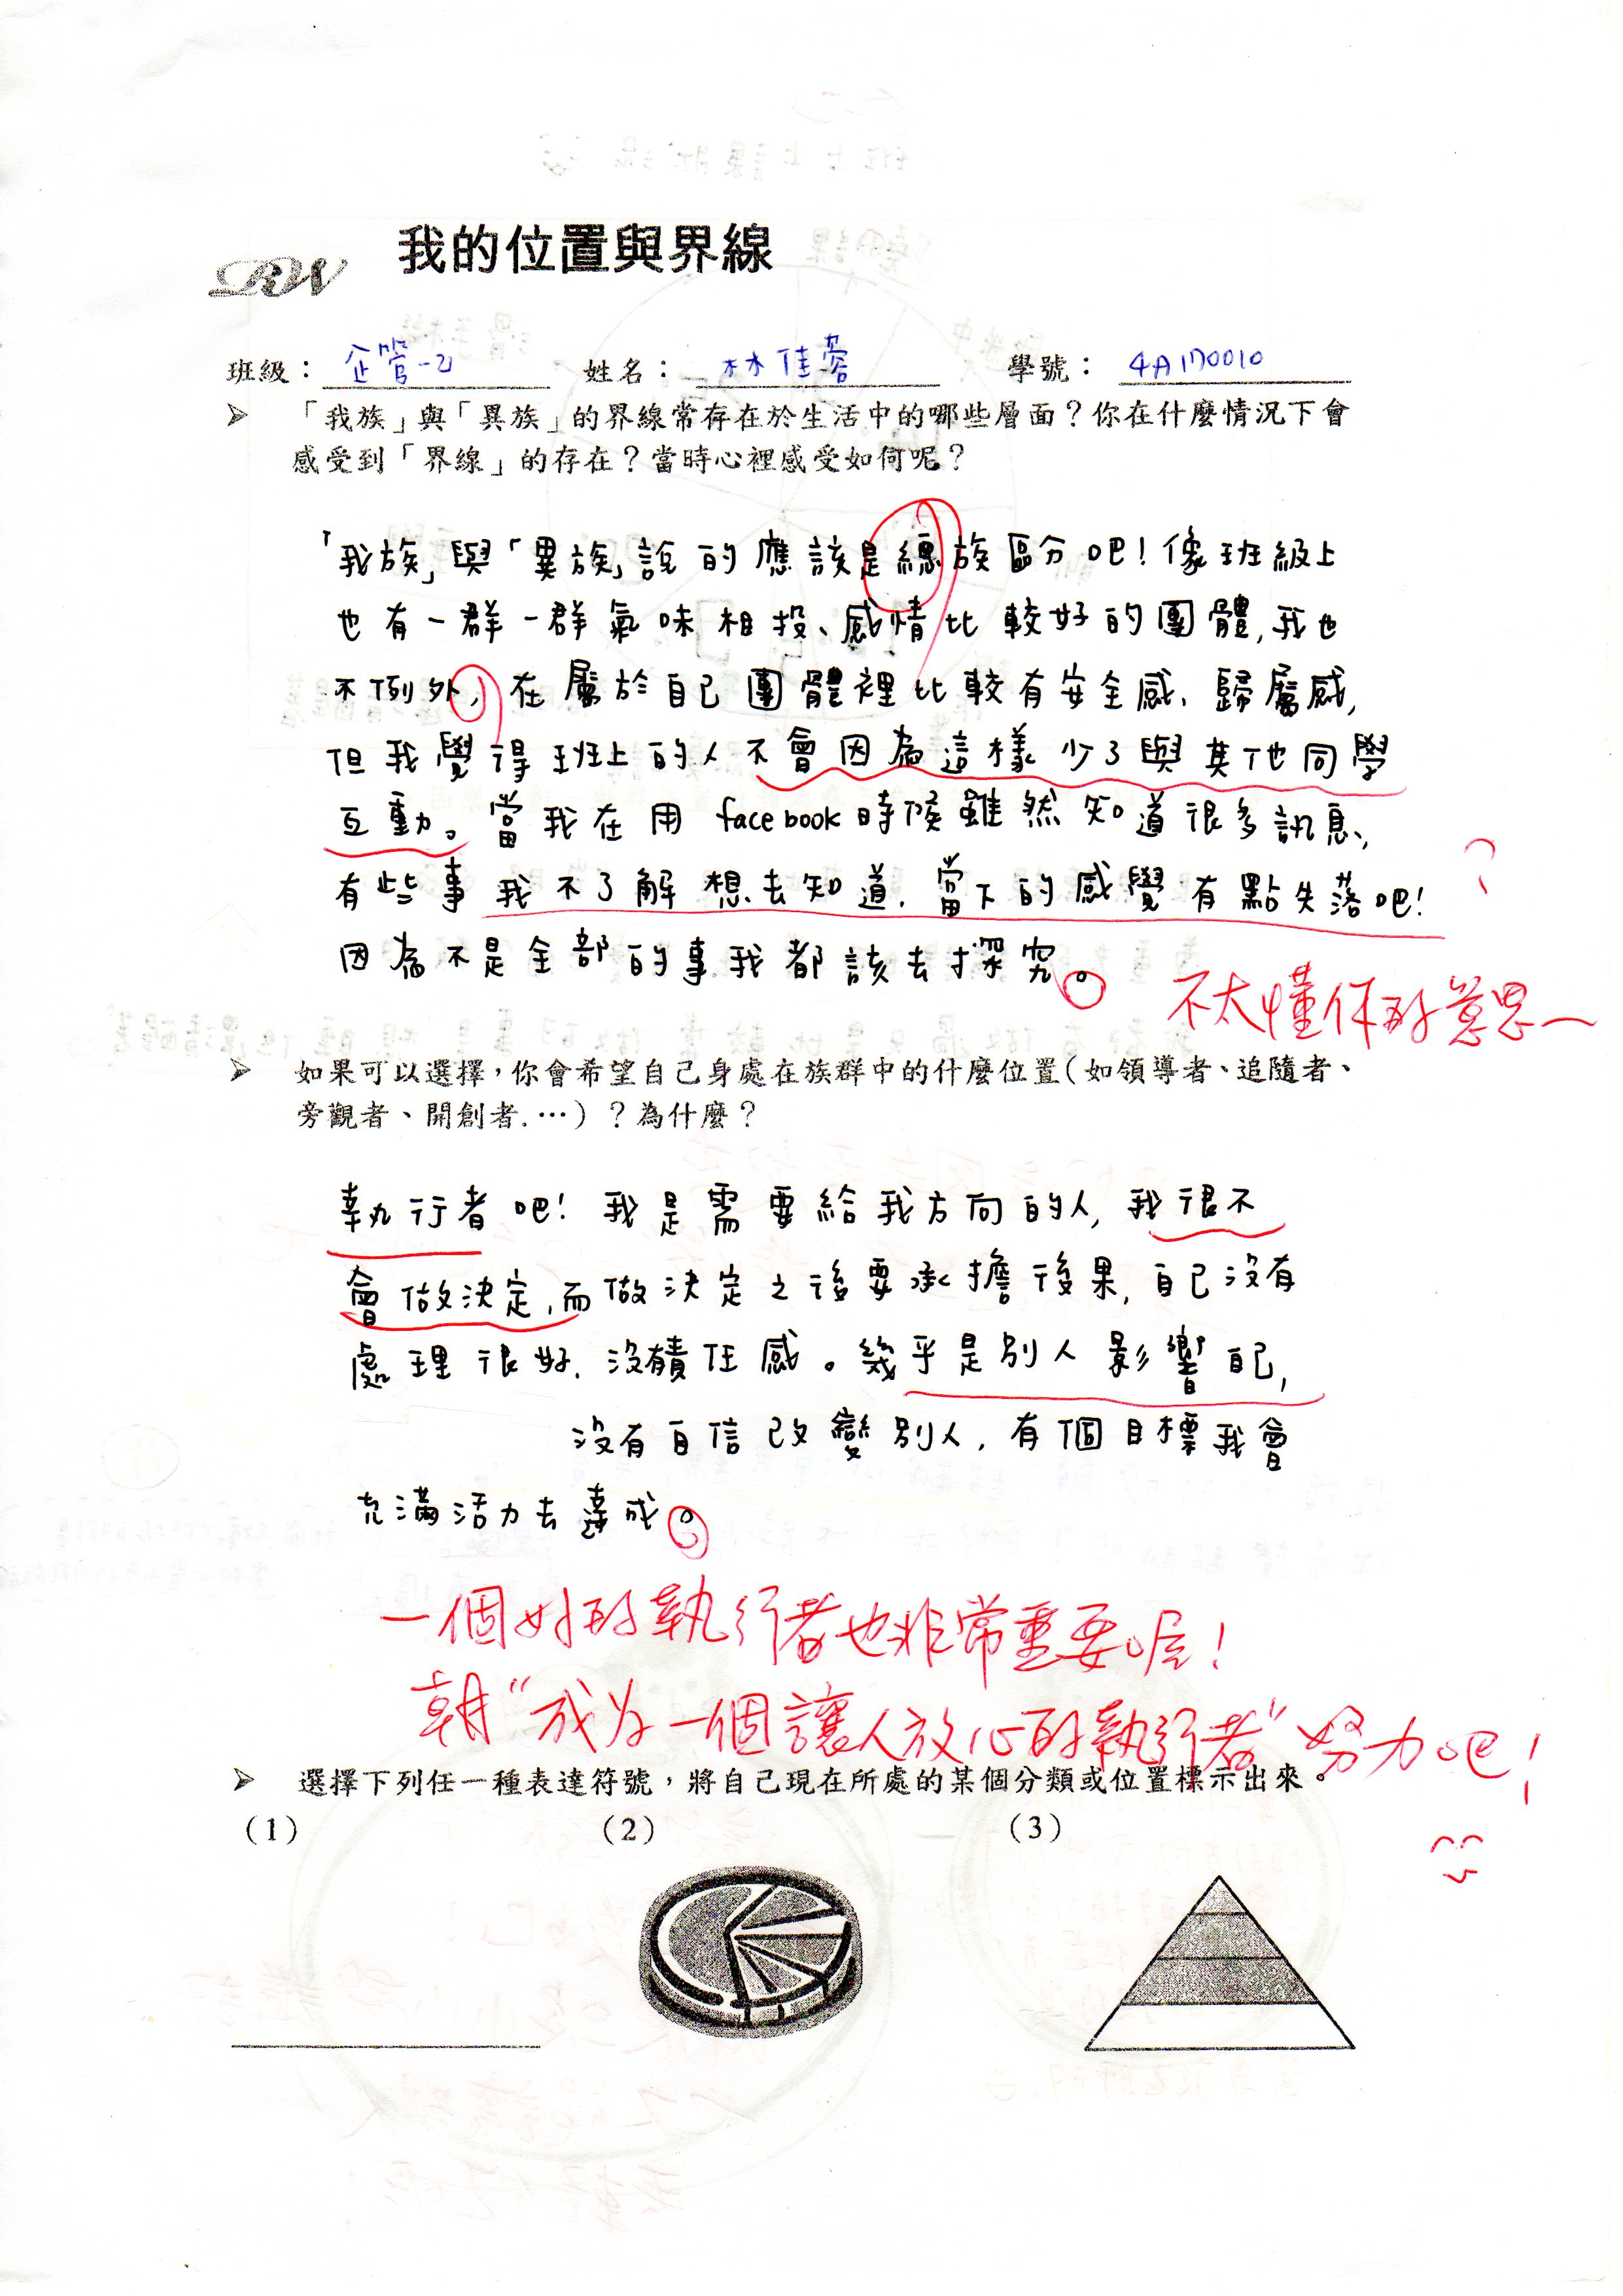 我的位置與界線
RW
班級：企管一乙 姓名：林佳蓉 學號：4A170010
➢ 「我族」與「異族」的界線常存在於生活中的哪些層面？你在什麼情況下會
感受到「界線」的存在？當時心裡感受如何呢？
「我族」與「異族」說的應該是總族區分吧！像班級上
也有一群一群氣味相投、感情比較好的團體，我也
不例外，在屬於自己團體裡比較有安全感、歸屬感，
但我覺得班上的人不會因為這樣少了與其他同學
互動。當我在用facebook時候雖然知道很多訊息、
有些事我不了解想去知道，當下的感覺有點失落吧！
因為不是全部的事我都該去探究。
?
不太懂你的意思～
➢ 如果可以選擇，你會希望自己身處在族群中的什麼位置（如領導者、追隨者、
旁觀者、開創者.…）？為什麼？
執行者吧！我是需要給我方向的人，我很不
會做決定，而做決定之後要承擔後果，自己沒有
處理很好，沒責任感。幾乎是別人影響自己，
沒有自信改變別人，有個目標我會
充滿活力去達成。
一個好的執行者也非常重要喔！
朝“成為一個讓人放心的執行者”努力吧！
➢ 選擇下列任一種表達符號，將自己現在所處的某個分類或位置標示出來。
(1) (2) (3)